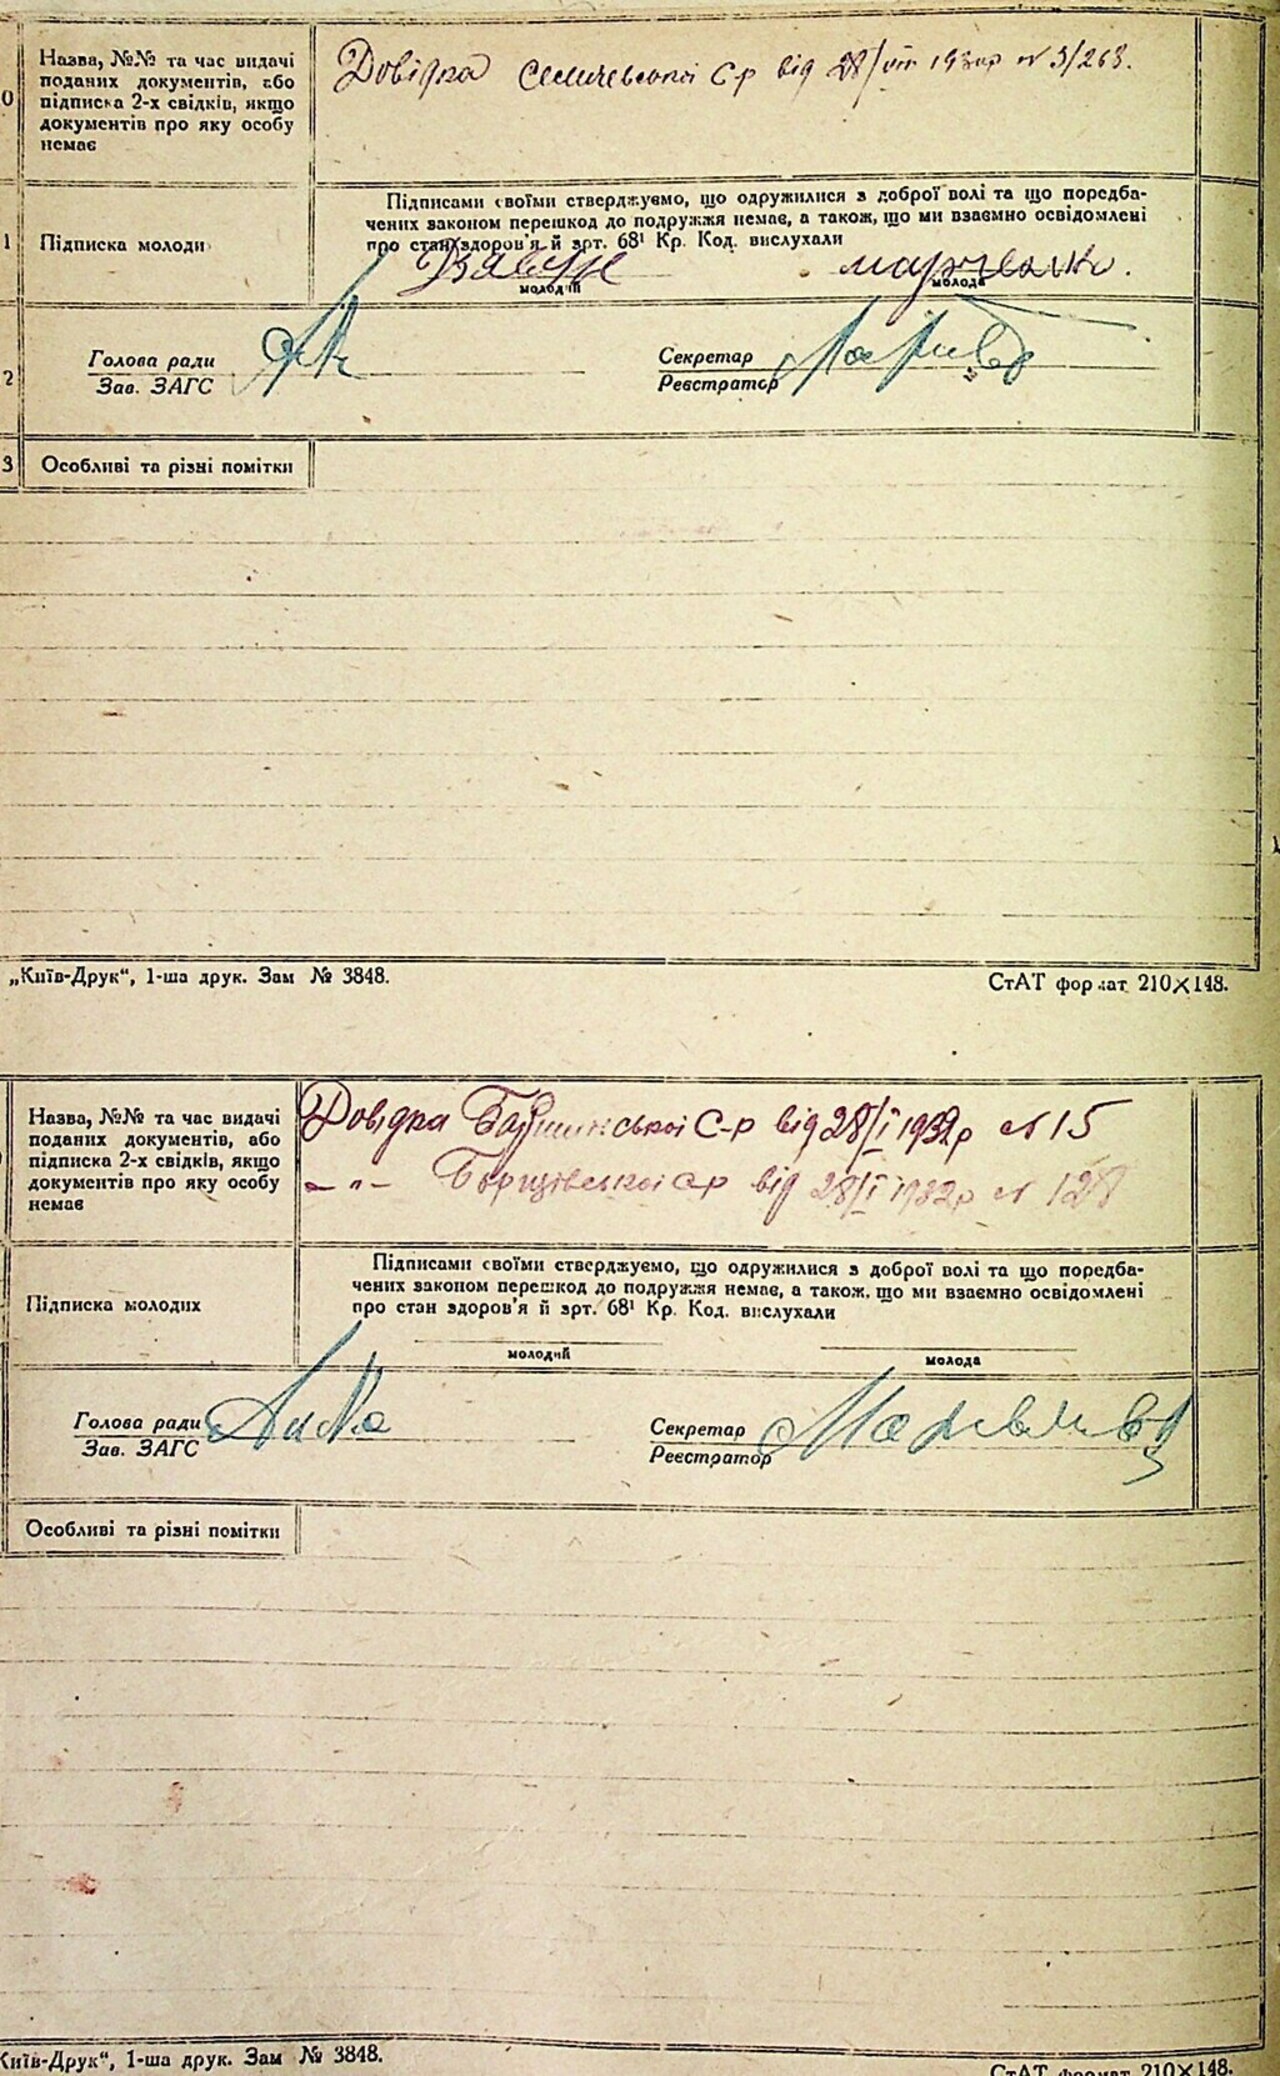 0
Назва, №№ та час видачі
поданих документів, або
підписка 2-х свідків, якщо
документів про яку особу
немає
Довідка С-р від 28/VIII N 3/263.
1
Підписка молоди
Підписами своїми стверджуємо, що одружилися з доброї волі та що поредба-
чених законом перешкод до подружжя немає, а також, що ми взаємно освідомлені
про стан здоров'я й зрт. 68¹ Кр. Код. вислухали
молодий
молода
2
Голова ради
Зав. ЗАГС
Секретар
Реєстратор
3
Особливі та різні помітки
„Київ-Друк“, 1-ша друк. Зам № 3848.
СтАТ формат 210×148.
Назва, №№ та час видачі
поданих документів, або
підписка 2-х свідків, якщо
документів про яку особу
немає
Довідка С-р від 28/I 1932р N 15
-"- Борщівської ср від 28/I 1932р N 128
Підписка молодих
Підписами своїми стверджуємо, що одружилися з доброї волі та що поредба-
чених законом перешкод до подружжя немає, а також, що ми взаємно освідомлені
про стан здоров'я й зрт. 68¹ Кр. Код. вислухали
молодий
молода
Голова ради
Зав. ЗАГС
Секретар
Реєстратор
Особливі та різні помітки
Київ-Друк“, 1-ша друк. Зам № 3848.
СтАТ формат 210×148.